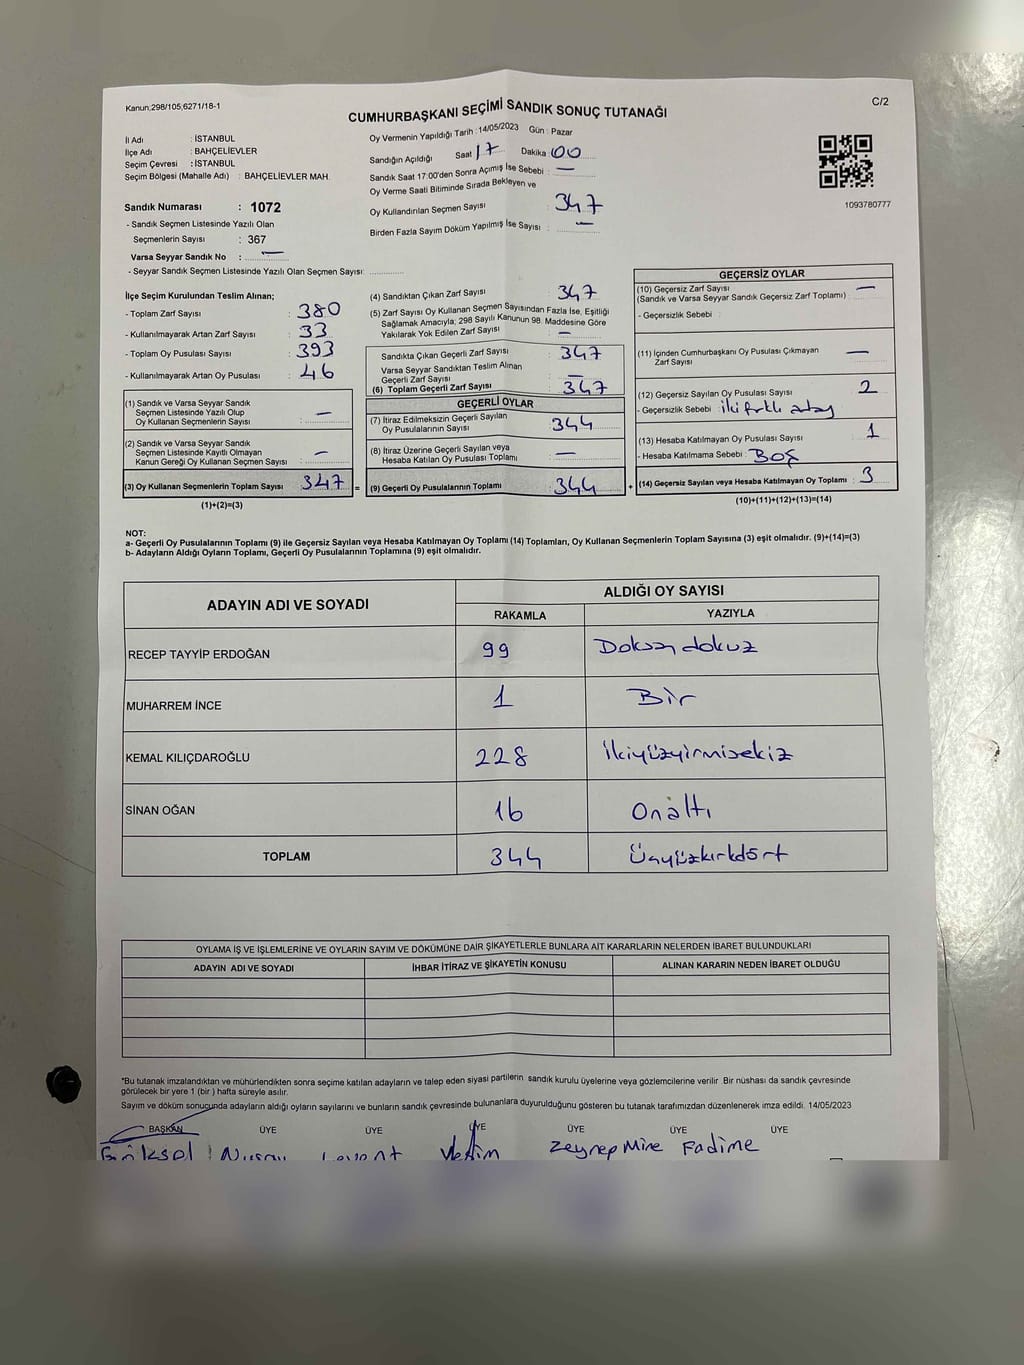 Kanun:298/105,6271/18-1
C/2
CUMHURBAŞKANI SEÇİMİ SANDIK SONUÇ TUTANAĞI
İl Adı : İSTANBUL
İlçe Adı : BAHÇELİEVLER
Seçim Çevresi : İSTANBUL
Seçim Bölgesi (Mahalle Adı) : BAHÇELİEVLER MAH.
Sandık Numarası : 1072
- Sandık Seçmen Listesinde Yazılı Olan
Seçmenlerin Sayısı : 367
Varsa Seyyar Sandık No : —
- Seyyar Sandık Seçmen Listesinde Yazılı Olan Seçmen Sayısı:
Oy Vermenin Yapıldığı Tarih : 14/05/2023 Gün : Pazar
Sandığın Açıldığı Saat 17 Dakika 00
Sandık Saat 17:00'den Sonra Açımış İse Sebebi : —
Oy Verme Saati Bitiminde Sırada Bekleyen ve
Oy Kullandırılan Seçmen Sayısı 347
Birden Fazla Sayım Döküm Yapılmış İse Sayısı : —
1093780777
İlçe Seçim Kurulundan Teslim Alınan;
- Toplam Zarf Sayısı : 380
- Kullanılmayarak Artan Zarf Sayısı : 33
- Toplam Oy Pusulası Sayısı : 393
- Kullanılmayarak Artan Oy Pusulası : 46
(1) Sandık ve Varsa Seyyar Sandık
Seçmen Listesinde Yazılı Olup
Oy Kullanan Seçmenlerin Sayısı : —
(2) Sandık ve Varsa Seyyar Sandık
Seçmen Listesinde Kayıtlı Olmayan
Kanun Gereği Oy Kullanan Seçmen Sayısı : —
(3) Oy Kullanan Seçmenlerin Toplam Sayısı : 347 =
(1)+(2)=(3)
(4) Sandıktan Çıkan Zarf Sayısı : 347
(5) Zarf Sayısı Oy Kullanan Seçmen Sayısından Fazla İse, Eşitliği
Sağlamak Amacıyla; 298 Sayılı Kanunun 98. Maddesine Göre
Yakılarak Yok Edilen Zarf Sayısı : —
Sandıkta Çıkan Geçerli Zarf Sayısı : 347
Varsa Seyyar Sandıktan Teslim Alınan
Geçerli Zarf Sayısı : —
(6) Toplam Geçerli Zarf Sayısı : 347
GEÇERLİ OYLAR
(7) İtiraz Edilmeksizin Geçerli Sayılan
Oy Pusulalarının Sayısı : 344
(8) İtiraz Üzerine Geçerli Sayılan veya
Hesaba Katılan Oy Pusulası Toplamı : —
(9) Geçerli Oy Pusulalarının Toplamı : 344 +
GEÇERSİZ OYLAR
(10) Geçersiz Zarf Sayısı : —
(Sandık ve Varsa Seyyar Sandık Geçersiz Zarf Toplamı)
- Geçersizlik Sebebi :
(11) İçinden Cumhurbaşkanı Oy Pusulası Çıkmayan
Zarf Sayısı : —
(12) Geçersiz Sayılan Oy Pusulası Sayısı : 2
- Geçersizlik Sebebi : iki farklı aday
(13) Hesaba Katılmayan Oy Pusulası Sayısı : 1
- Hesaba Katılmama Sebebi : Boş
(14) Geçersiz Sayılan veya Hesaba Katılmayan Oy Toplamı : 3
(10)+(11)+(12)+(13)=(14)
NOT:
a- Geçerli Oy Pusulalarının Toplamı (9) ile Geçersiz Sayılan veya Hesaba Katılmayan Oy Toplamı (14) Toplamları, Oy Kullanan Seçmenlerin Toplam Sayısına (3) eşit olmalıdır. (9)+(14)=(3)
b- Adayların Aldığı Oyların Toplamı, Geçerli Oy Pusulalarının Toplamına (9) eşit olmalıdır.
ADAYIN ADI VE SOYADI ALDIĞI OY SAYISI
RAKAMLA YAZIYLA
RECEP TAYYİP ERDOĞAN 99 Doksan dokuz
MUHARREM İNCE 1 Bir
KEMAL KILIÇDAROĞLU 228 İkiyüzyirmisekiz
SİNAN OĞAN 16 Onaltı
TOPLAM 344 Üçyüzkırkdört
OYLAMA İŞ VE İŞLEMLERİNE VE OYLARIN SAYIM VE DÖKÜMÜNE DAİR ŞİKAYETLERLE BUNLARA AİT KARARLARIN NELERDEN İBARET BULUNDUKLARI
ADAYIN ADI VE SOYADI İHBAR İTİRAZ VE ŞİKAYETİN KONUSU ALINAN KARARIN NEDEN İBARET OLDUĞU
*Bu tutanak imzalandıktan ve mühürlendikten sonra seçime katılan adayların ve talep eden siyasi partilerin sandık kurulu üyelerine veya gözlemcilerine verilir. Bir nüshası da sandık çevresinde
görülecek bir yere 1 (bir) hafta süreyle asılır.
Sayım ve döküm sonucunda adayların aldığı oyların sayılarını ve bunların sandık çevresinde bulunanlara duyurulduğunu gösteren bu tutanak tarafımızdan düzenlenerek imza edildi. 14/05/2023
BAŞKAN ÜYE ÜYE ÜYE ÜYE ÜYE ÜYE
Göksel Nuray Levent Zeynep Mine Fadime